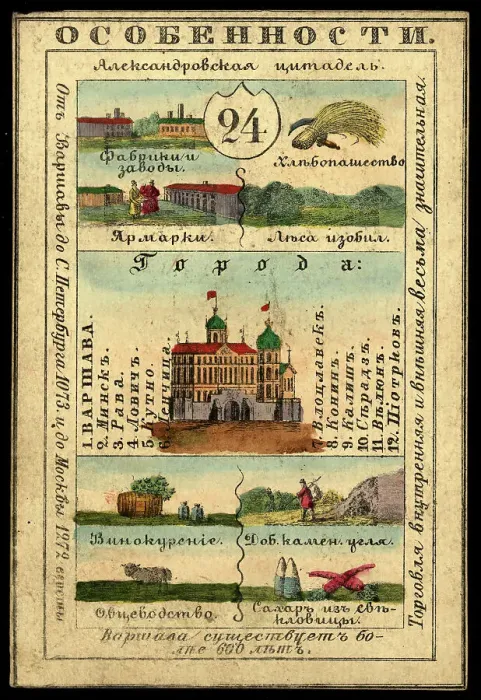 ОСОБЕННОСТИ.
Александровская цитадель.
Отъ Варшавы до С. Петербурга 1073 и до Москвы 1272 версты
24.
Фабрики и
заводы.
Хлѣбопашество
Ярмарки.
Лѣса изобил.
Города:
1. ВАРШАВА.
2. Минскъ.
3. Рава.
4. Ловичъ.
5. Кутно.
6. Ленчица.
7. Влоцлавскъ.
8. Конинъ.
9. Калишъ.
10. Сѣрадзъ.
11. Вѣлюнъ.
12. Піотрковъ.
Винокуреніе.
Доб. камен. угля.
Овцеводство.
Сахаръ изъ свѣ-
кловицы.
Торговля внутренняя и внѣшняя весьма значительная.
Варшава существуетъ бо-
лѣе 600 лѣтъ.